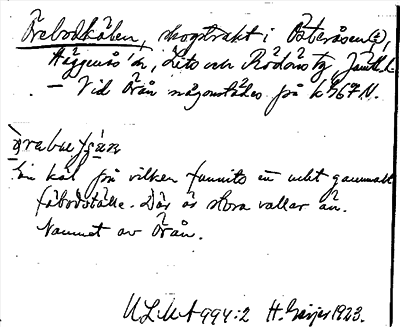 Öråbodkölen, skogstrakt i Österåsen(?),
Häggenås sn, Lits och Rödöns tg, Jämtl.
– Vid Örån någonstädes på k 367 N.
En köl på vilken funnits en
fäbodställe. Där är stora vallar än.
Namnet av Örån.
ULMA 994:2 H. Geijer 1923.